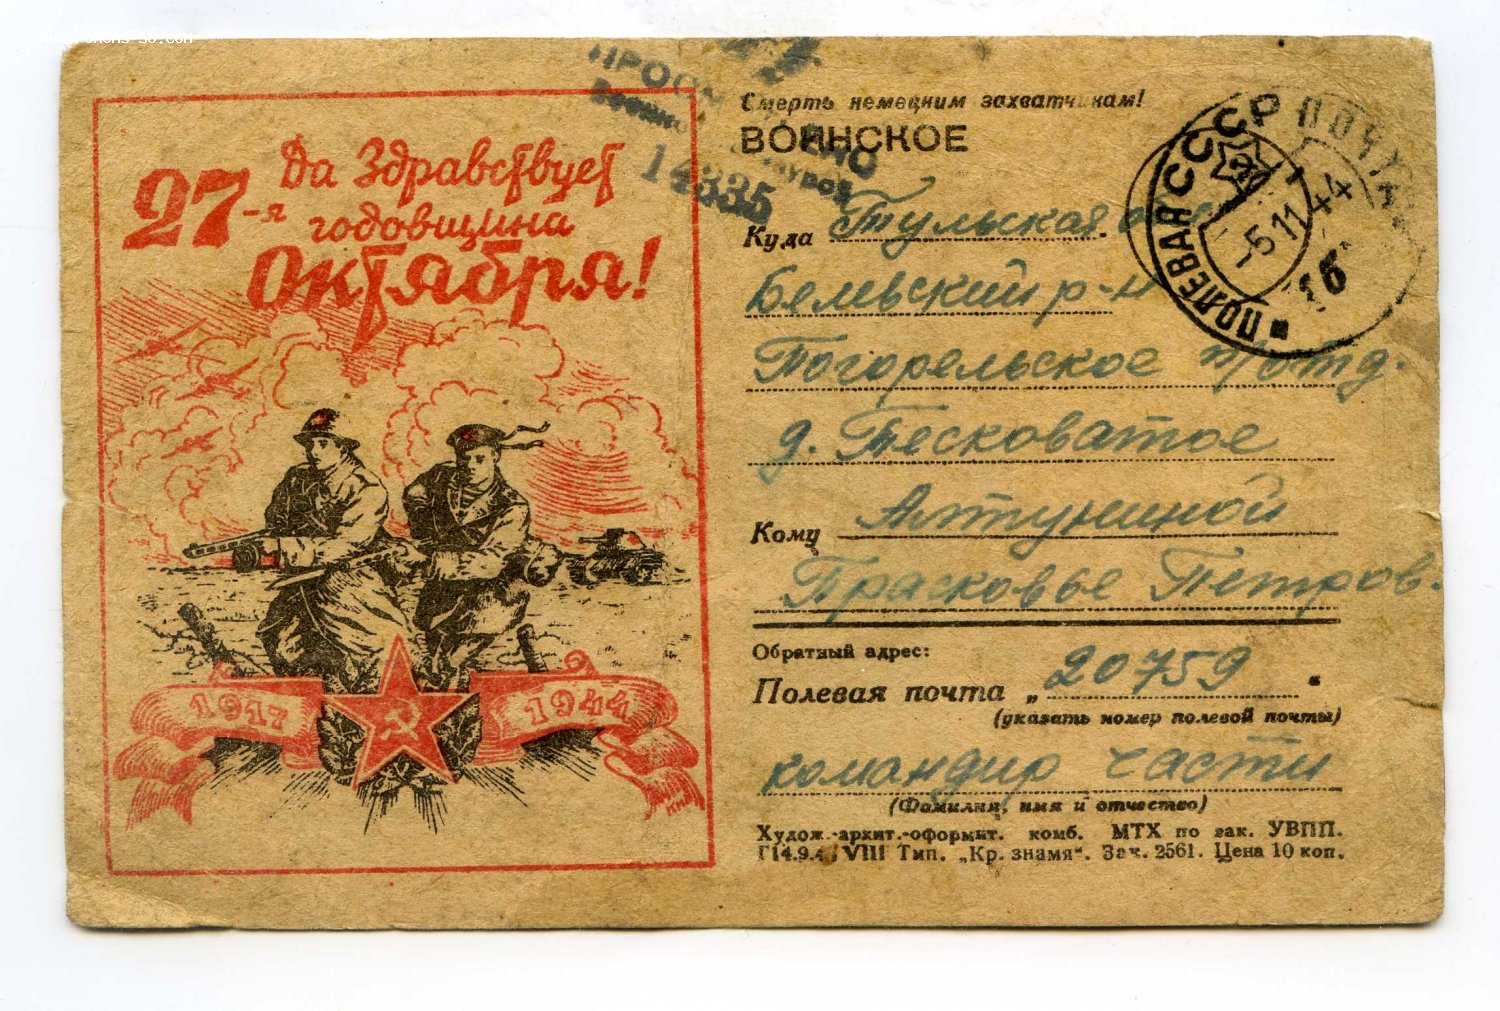 Да Здравствует
27-я годовщина
Октября!
1917
1944
ПРОСМОТРЕНО
Военной Цензурой
14335
Смерть немецким захватчикам!
ВОИНСКОЕ
ПОЛЕВАЯ СССР ПОЧТА
-5 11 44
Куда Тульская о
Белевский р-н
Погорельское п/отд.
д. Песковатое
Кому Алтуниной
Прасковье Петров.
Обратный адрес:
Полевая почта „20759"
(указать номер полевой почты)
командир части
(Фамилия, имя и отчество)
Худож.-архит.-оформит. комб. МТХ по зак. УВПП.
Г14.9.4 VIII Тип. „Кр. знамя“. Зак. 2561. Цена 10 коп.